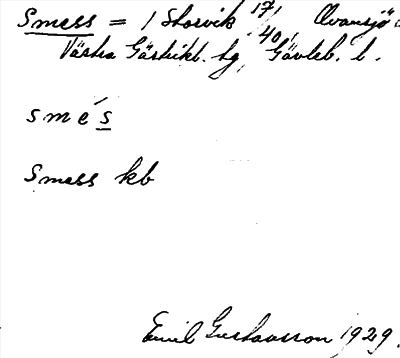 Smess = 1 Storvik 17, Ovansjö s
40,
Västra Gästrikl. hg, Gävleb. l.
smés
Smess kb
Emil Gustavsson 1929.